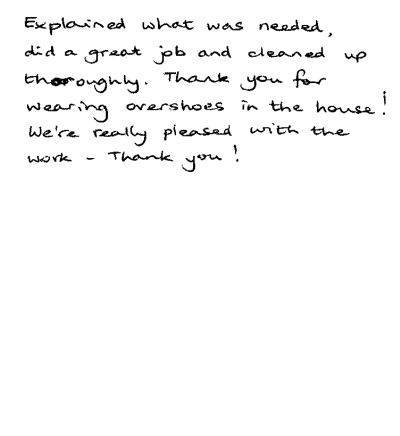 Explained what was needed,
did a great job and cleaned up
thoroughly. Thank you for
wearing overshoes in the house!
We're really pleased with the
work - Thank you!